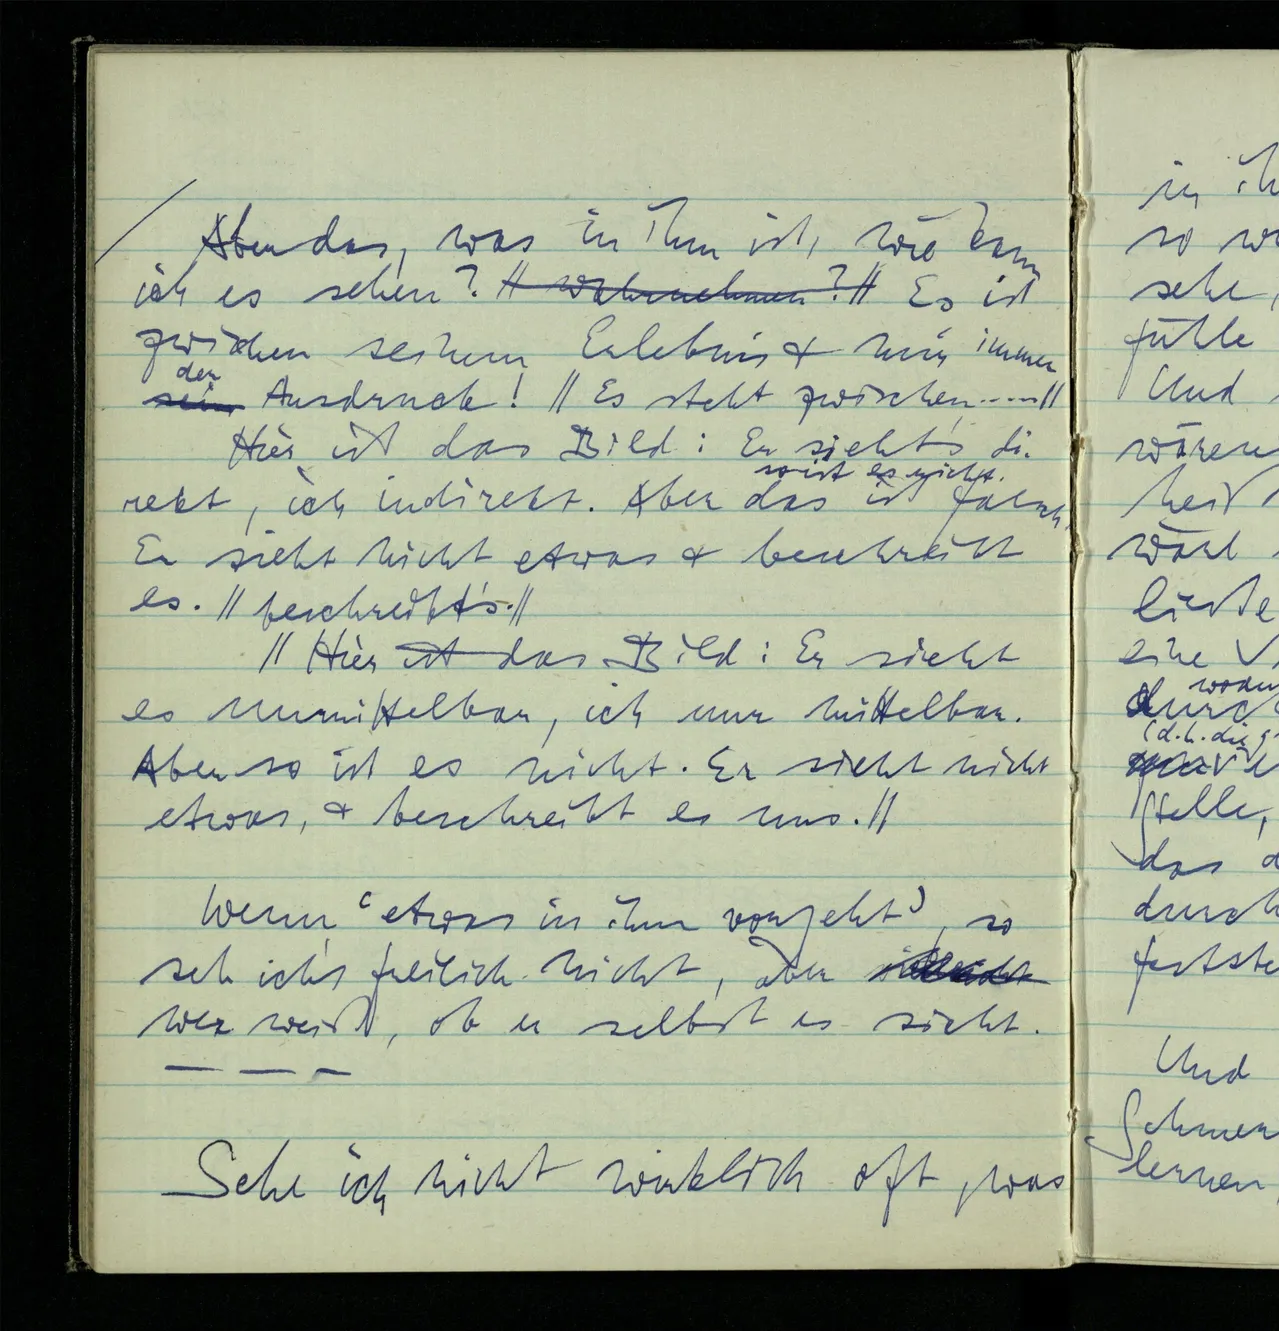 Aber das, was in ihm ist, wie kann
ich es sehen? // wahrnehmen? // Es ist
zwischen seinem Erlebnis & mir immer
der
sein Ausdruck! // Es steht zwischen....//
Hier ist das Bild: Er sieht's di-
so ist es nicht.
rekt, ich indirekt. Aber das ist falsch.
Er sieht nicht etwas & beschreibt
es. // beschreibt's. //
// Hier ist das Bild: Er sieht
es unmittelbar, ich nur mittelbar.
Aber so ist es nicht. Er sieht nicht
etwas, & beschreibt es uns. //
Wenn ‘etwas in ihm vorgeht’, so
seh ich's freilich nicht, aber
wer weiß, ob er selbst es sieht.
— — —
Sehe ich nicht wirklich oft, was
in ih
so wi
sehe,
fühle
Und
wären
heiß
wohl
ließe
eine V
durch
(d.h. die g
stelle,
das d
durch
festste
Und
Schmer
lernen,